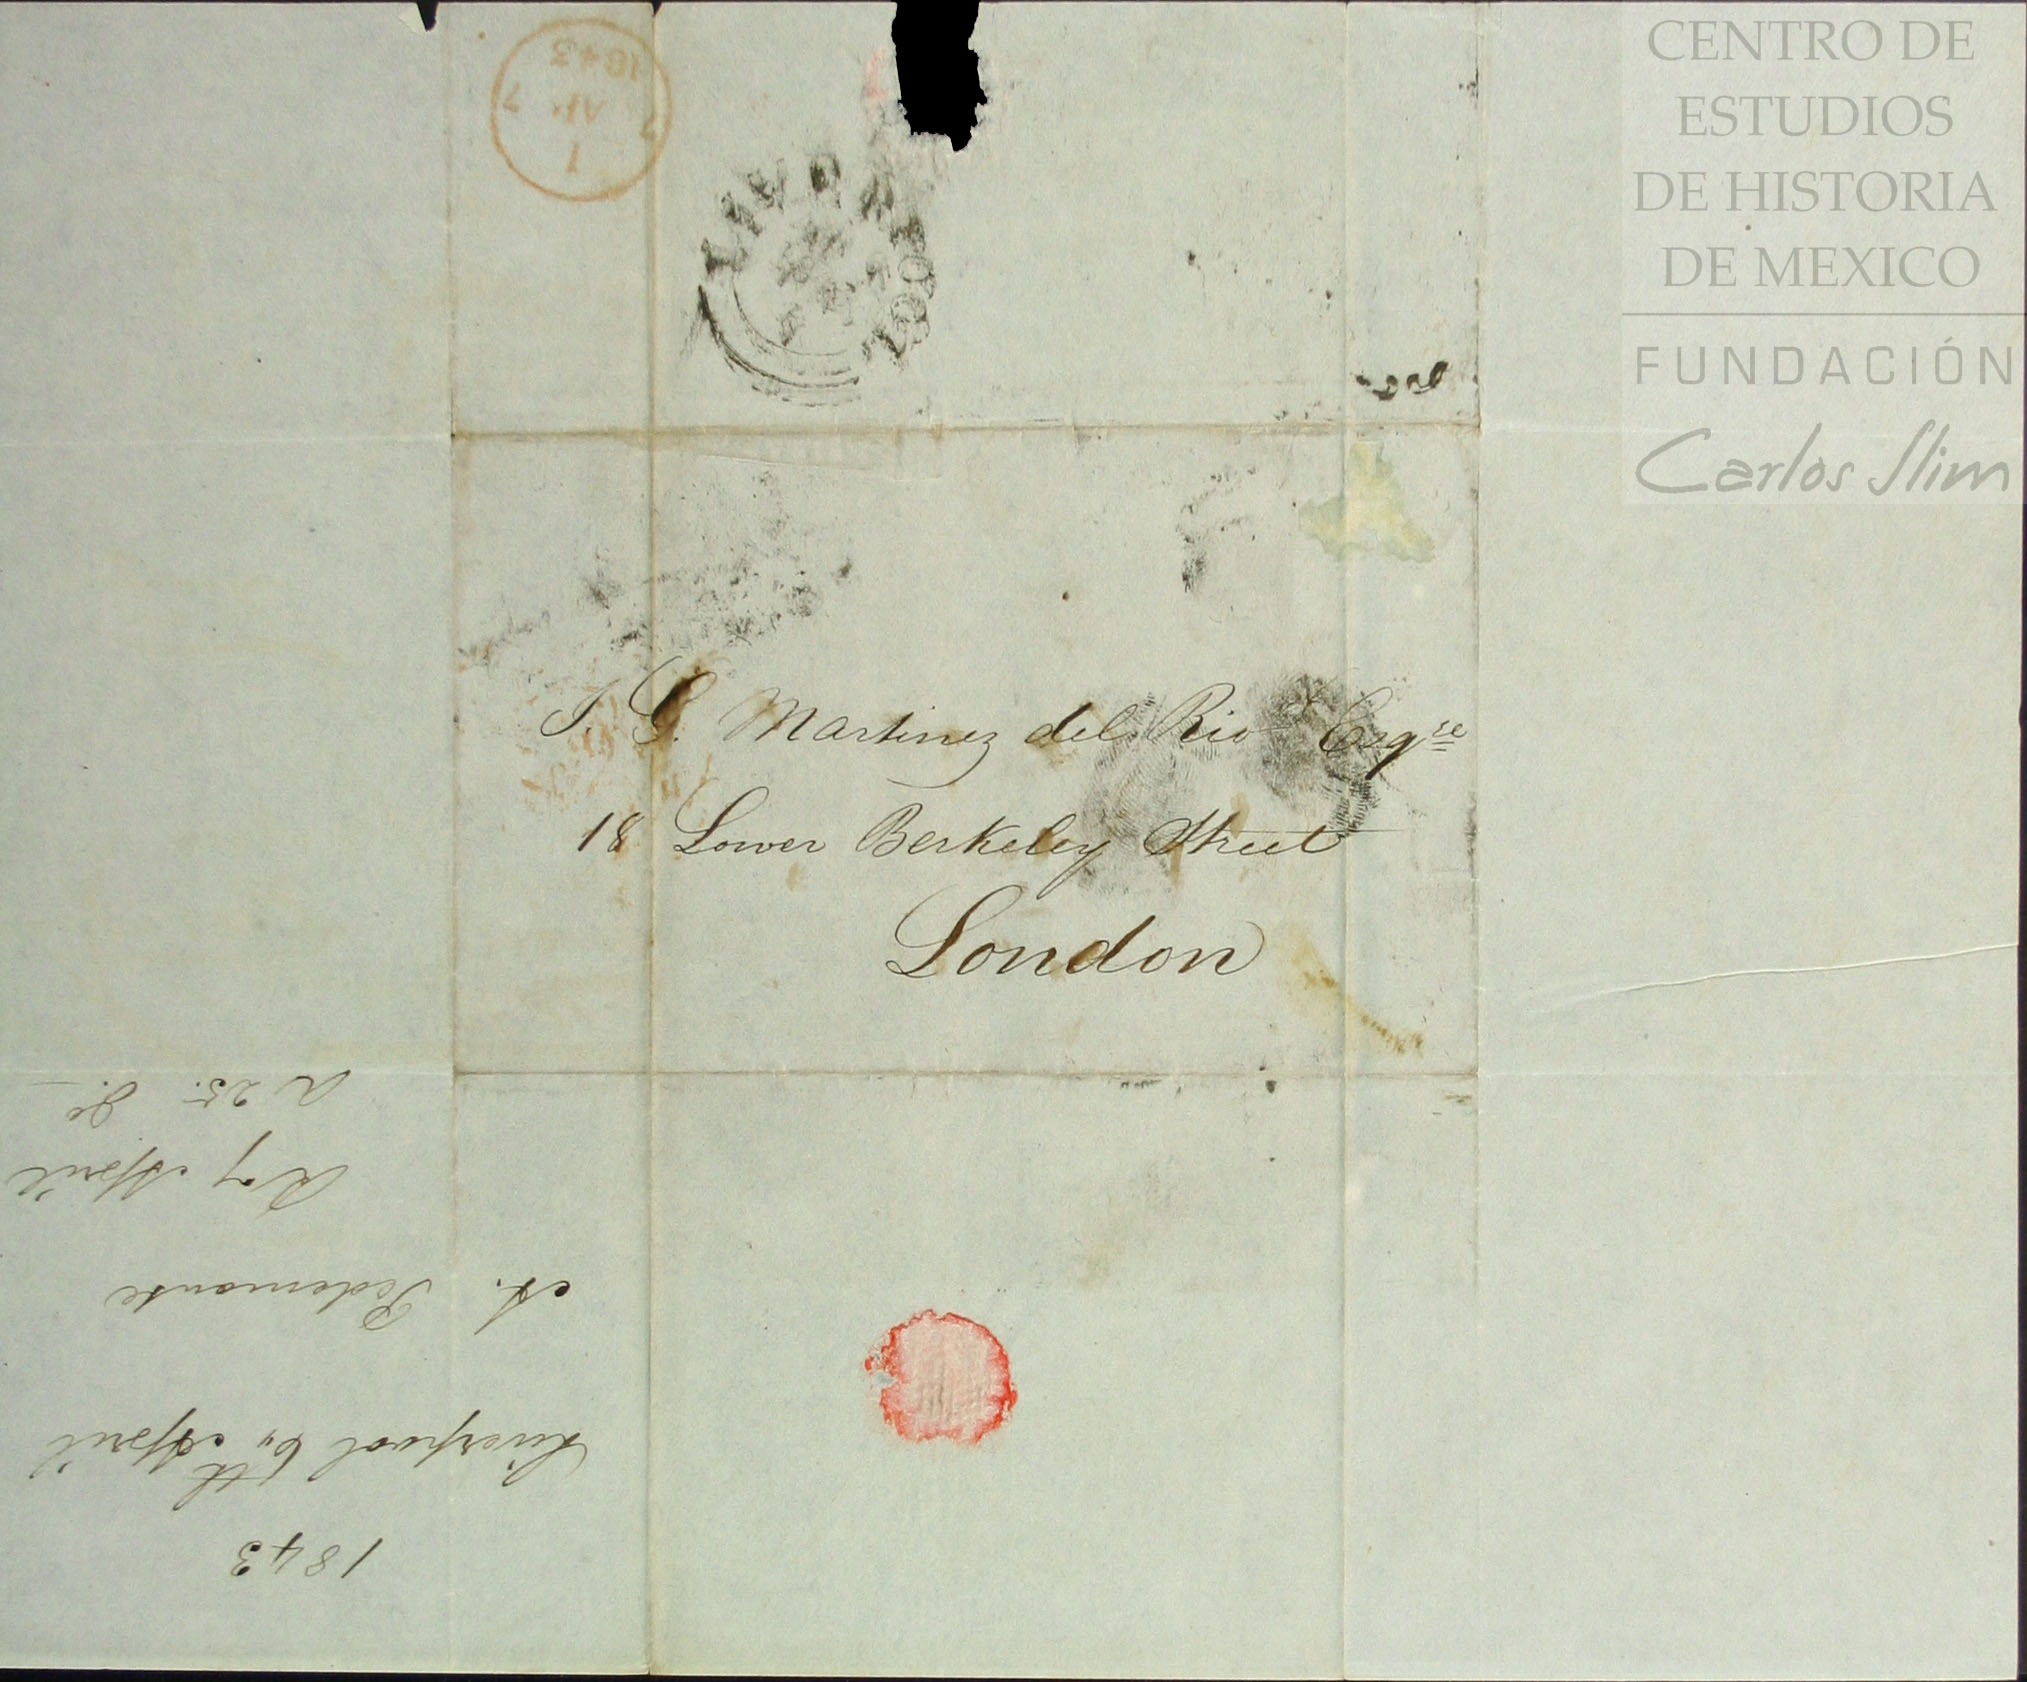 CENTRO DE
ESTUDIOS
DE HISTORIA
DE MEXICO
FUNDACIÓN
Carlos Slim
1
7 AP 7
1843
LIVERPOOL
J. G. Martinez del Rio Esqre
18 Lower Berkeley Street
London
1843
Liverpool 6th April
A. Pedemonte
R 7 April
a 25.